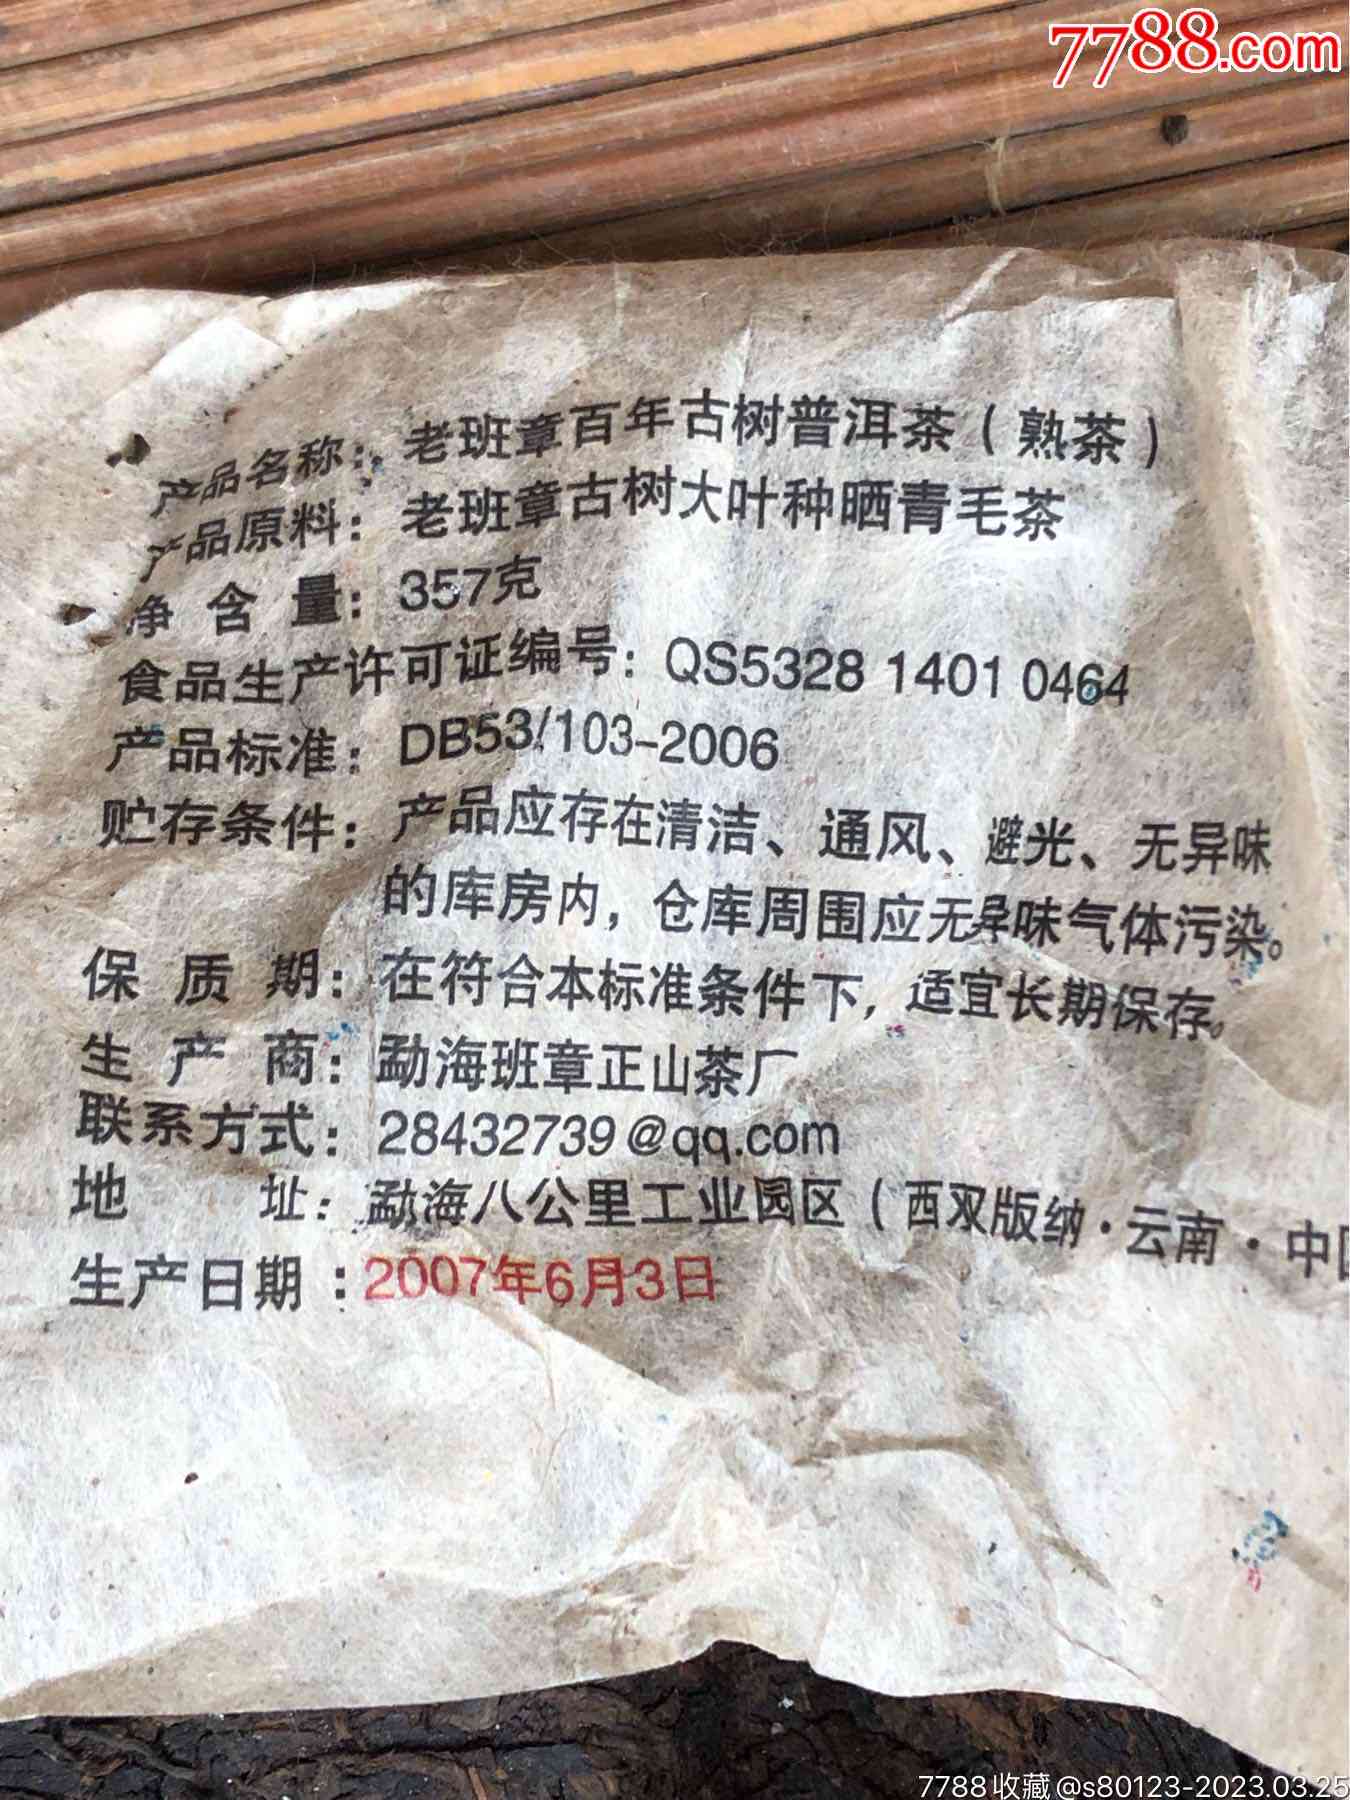 7788.com
产品名称：老班章百年古树普洱茶（熟茶）
产品原料：老班章古树大叶种晒青毛茶
净含量：357克
食品生产许可证编号：QS5328 1401 0464
产品标准：DB53/103-2006
贮存条件：产品应存在清洁、通风、避光、无异味
的库房内，仓库周围应无异味气体污染。
保质期：在符合本标准条件下，适宜长期保存。
生产商：勐海班章正山茶厂
联系方式：28432739@qq.com
地址：勐海八公里工业园区（西双版纳·云南·中
生产日期：2007年6月3日
7788收藏@s80123-2023.03.25